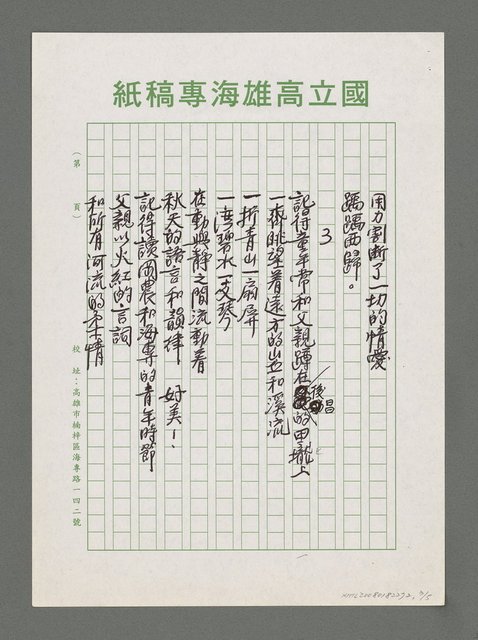 國立高雄海專稿紙
用力割斷了一切的情愛
踽踽西歸。
3
記得童年常和父親蹲在後昌的田壠上
一齊眺望著遠方的山巒和溪流
一折青山一扇屏
一灣碧水一支琴
在動與靜之間流動著
秋天的語言和韻律 好美!
記得讀雨農和海專的青年時節
父親以火紅的言詞
和所有河流的柔情
(第 頁)
校址:高雄市楠梓區海專路一四二號